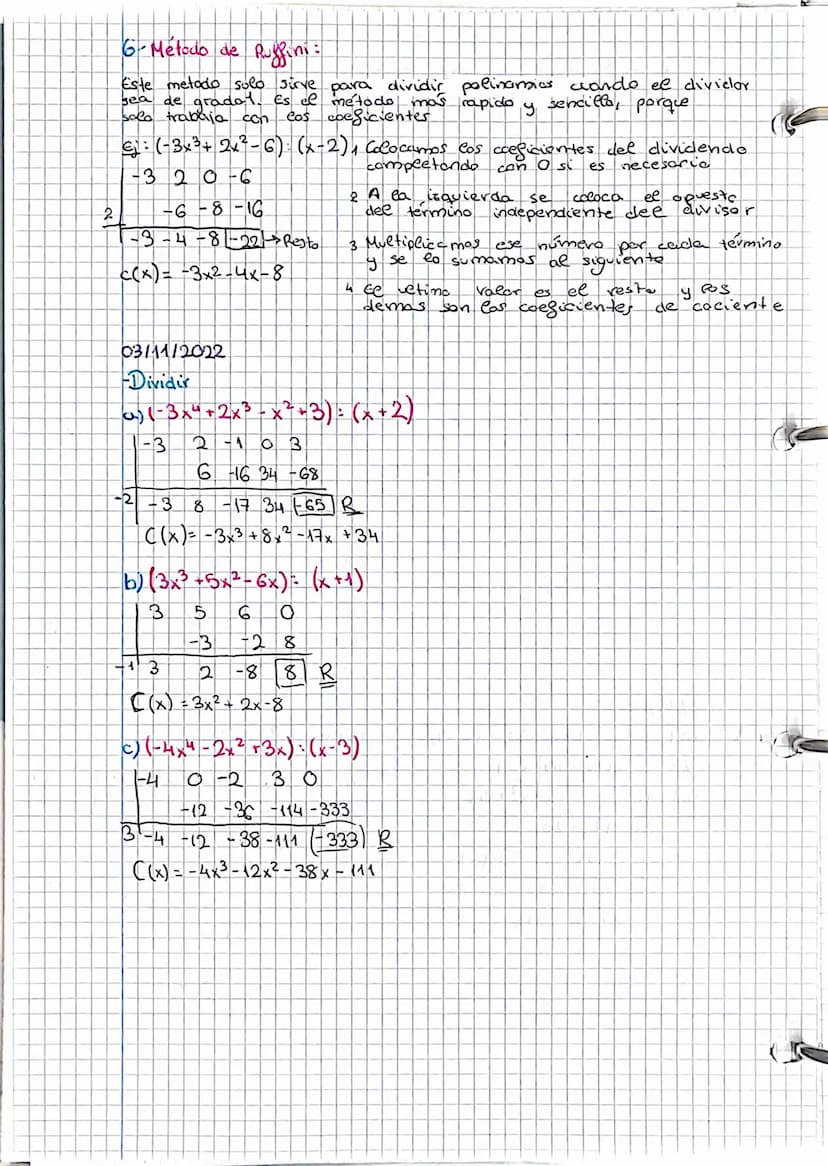 6- Método de Ruffini:
Este metodo solo sirve para dividir polinomios cuando el divisor
sea de grado 1. Es el método mas rapido y sencillo, porque
solo trabaja con los coeficientes
Ej: (-3x³+ 2x²-6):(x-2)
-3 2 0 -6
2 -6 -8 -16
-3 -4 -8 -22 → Resto
c(x)= -3x2-4x-8
1 Colocamos los coeficientes del dividendo
completando con 0 si es necesario
2 A la izquierda se coloca el opuesto
del término independiente del divisor
3 Multiplicamos ese número por cada término
y se lo sumamos al siguiente
4 El ultimo valor es el resto y los
demas son los coeficientes de cociente
03/11/2022
-Dividir
a) (-3x⁴+2x³-x²+3):(x+2)
-3 2 -1 0 3
6 -16 34 -68
-2 -3 8 -17 34 -65 R
C(x)= -3x³+8x²-17x +34
b) (3x³+5x²-6x): (x+1)
3 5 6 0
-3 -2 8
-1 3 2 -8 8 R
C(x) = 3x²+ 2x-8
c) (-4x⁴-2x²+3x):(x-3)
-4 0 -2 3 0
-12 -36 -114 -333
3 -4 -12 -38 -111 -333 R
C(x) = -4x³-12x²-38x-111